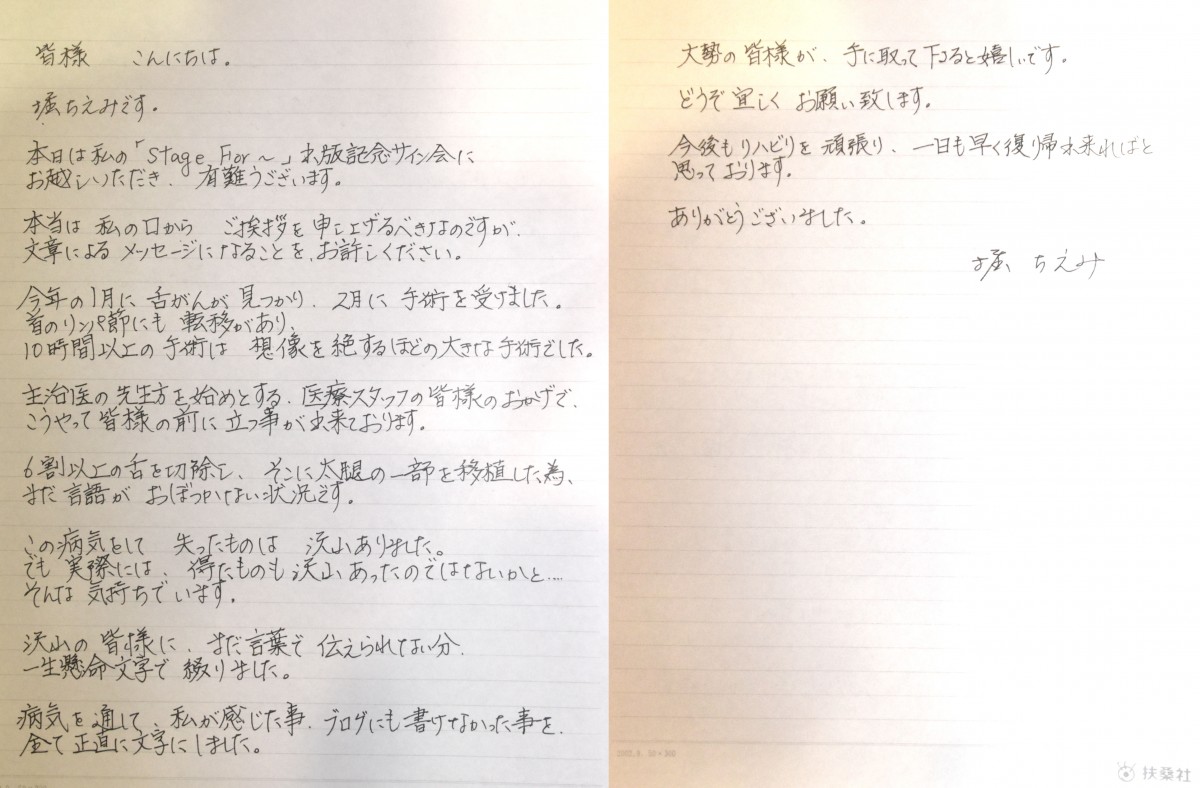 皆様　こんにちは。
堀ちえみです。
本日は私の「Stage For~」出版記念サイン会に
お越しいただき、有難うございます。
本当は 私の口から ご挨拶を申し上げるべきなのですが、
文章による メッセージになることを、お許しください。
今年の1月に 舌がんが 見つかり、2月に 手術を受けました。
首のリンパ節にも 転移があり、
10時間以上の 手術は 想像を絶するほどの大きな手術でした。
主治医の先生方を始めとする、医療スタッフの皆様のおかげで、
こうやって 皆様の前に 立つ事が出来ております。
6割以上の舌を切除し、そこに太腿の一部を移植した為、
まだ 言語が おぼつかない状況です。
この病気をして 失ったものは 沢山ありました。
でも 実際には、得たものも 沢山 あったのではないかと....
そんな 気持ちでいます。
沢山の 皆様に、まだ言葉で 伝えられてない分、
一生懸命 文字で 綴りました。
病気を通して、私が感じた事、ブログにも書けなかった事を、
全て 正直に文字にしました。
大勢の 皆様が、手に取って下さると嬉しいです。
どうぞ 宜しく お願い致します。
今後もリハビリを 頑張り、一日も早く復帰出来ればと
思っております。
ありがとうございました。
堀 ちえみ
扶桑社